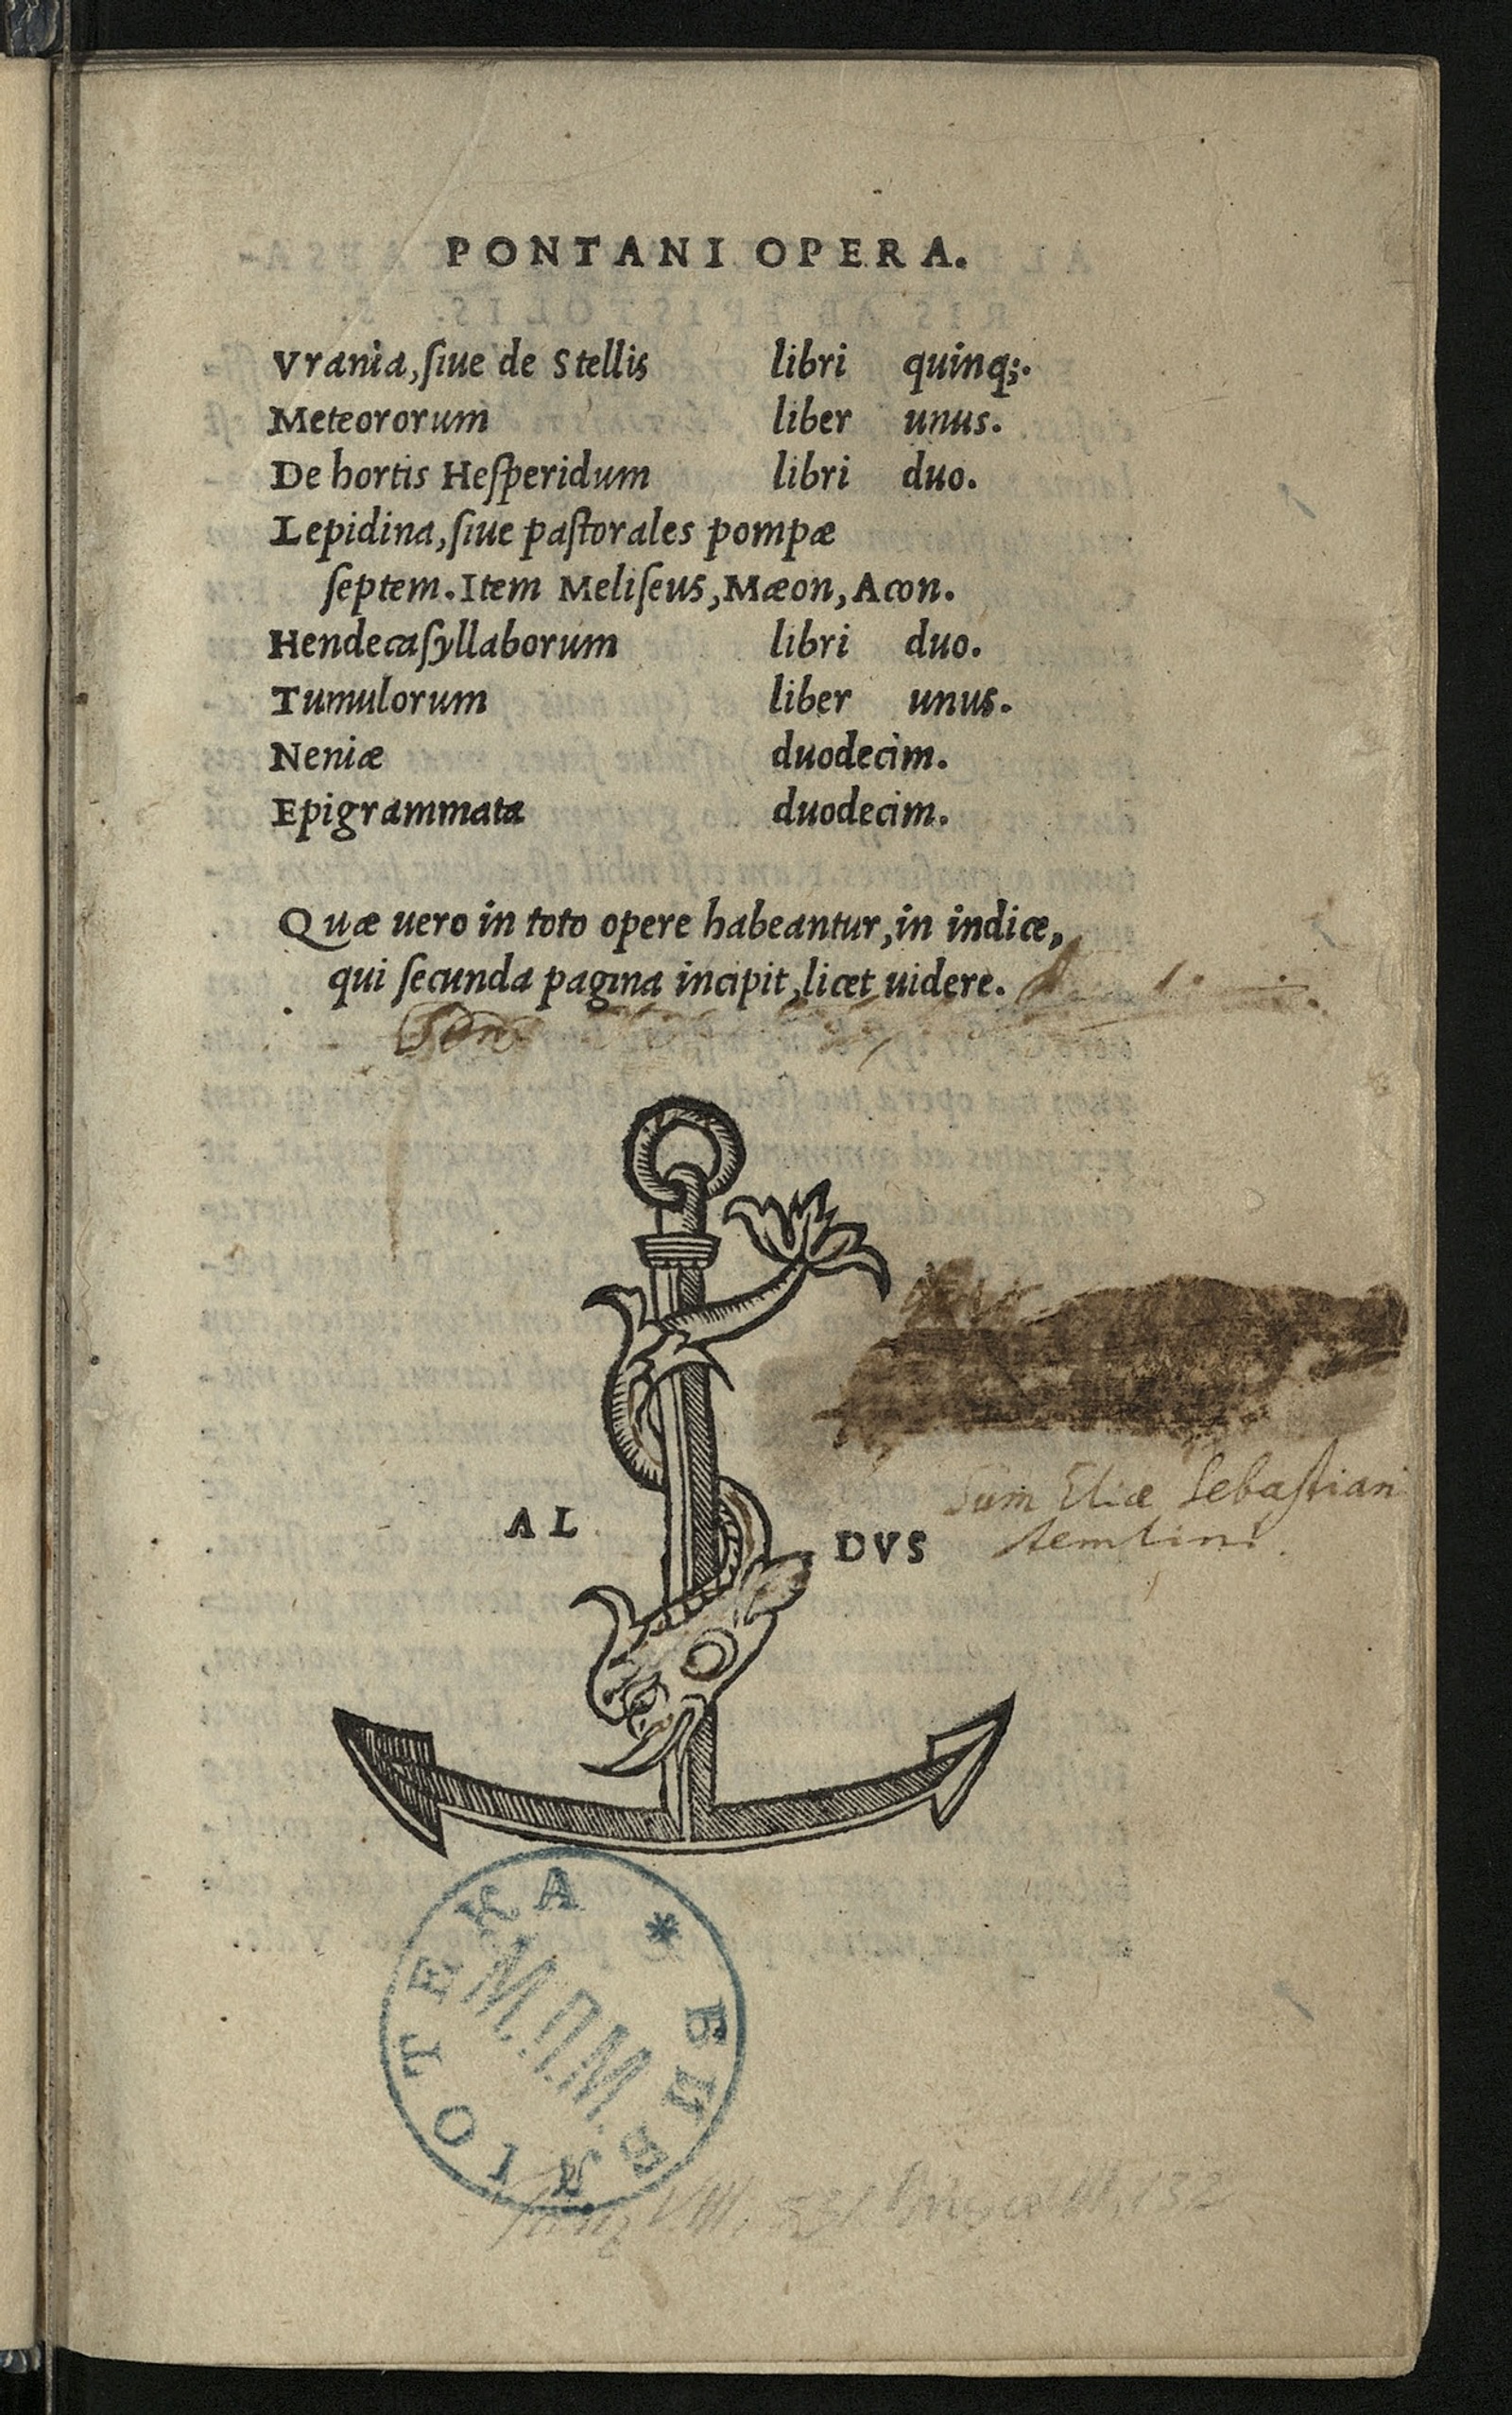 PONTANI OPERA.
Vrania, ſiue de Stellis libri quinq;.
Meteororum liber unus.
De hortis Heſperidum libri duo.
Lepidina, ſiue paſtorales pompæ
ſeptem. Item Meliſeus, Mæon, Acon.
Hendecaſyllaborum libri duo.
Tumulorum liber unus.
Neniæ duodecim.
Epigrammata duodecim.
Quæ uero in toto opere habeantur, in indice,
qui ſecunda pagina incipit, licet uidere.
Sum Eliæ Sebaſtiani
AL DVS
БИБЛІОТЕКА *
М.П.М.